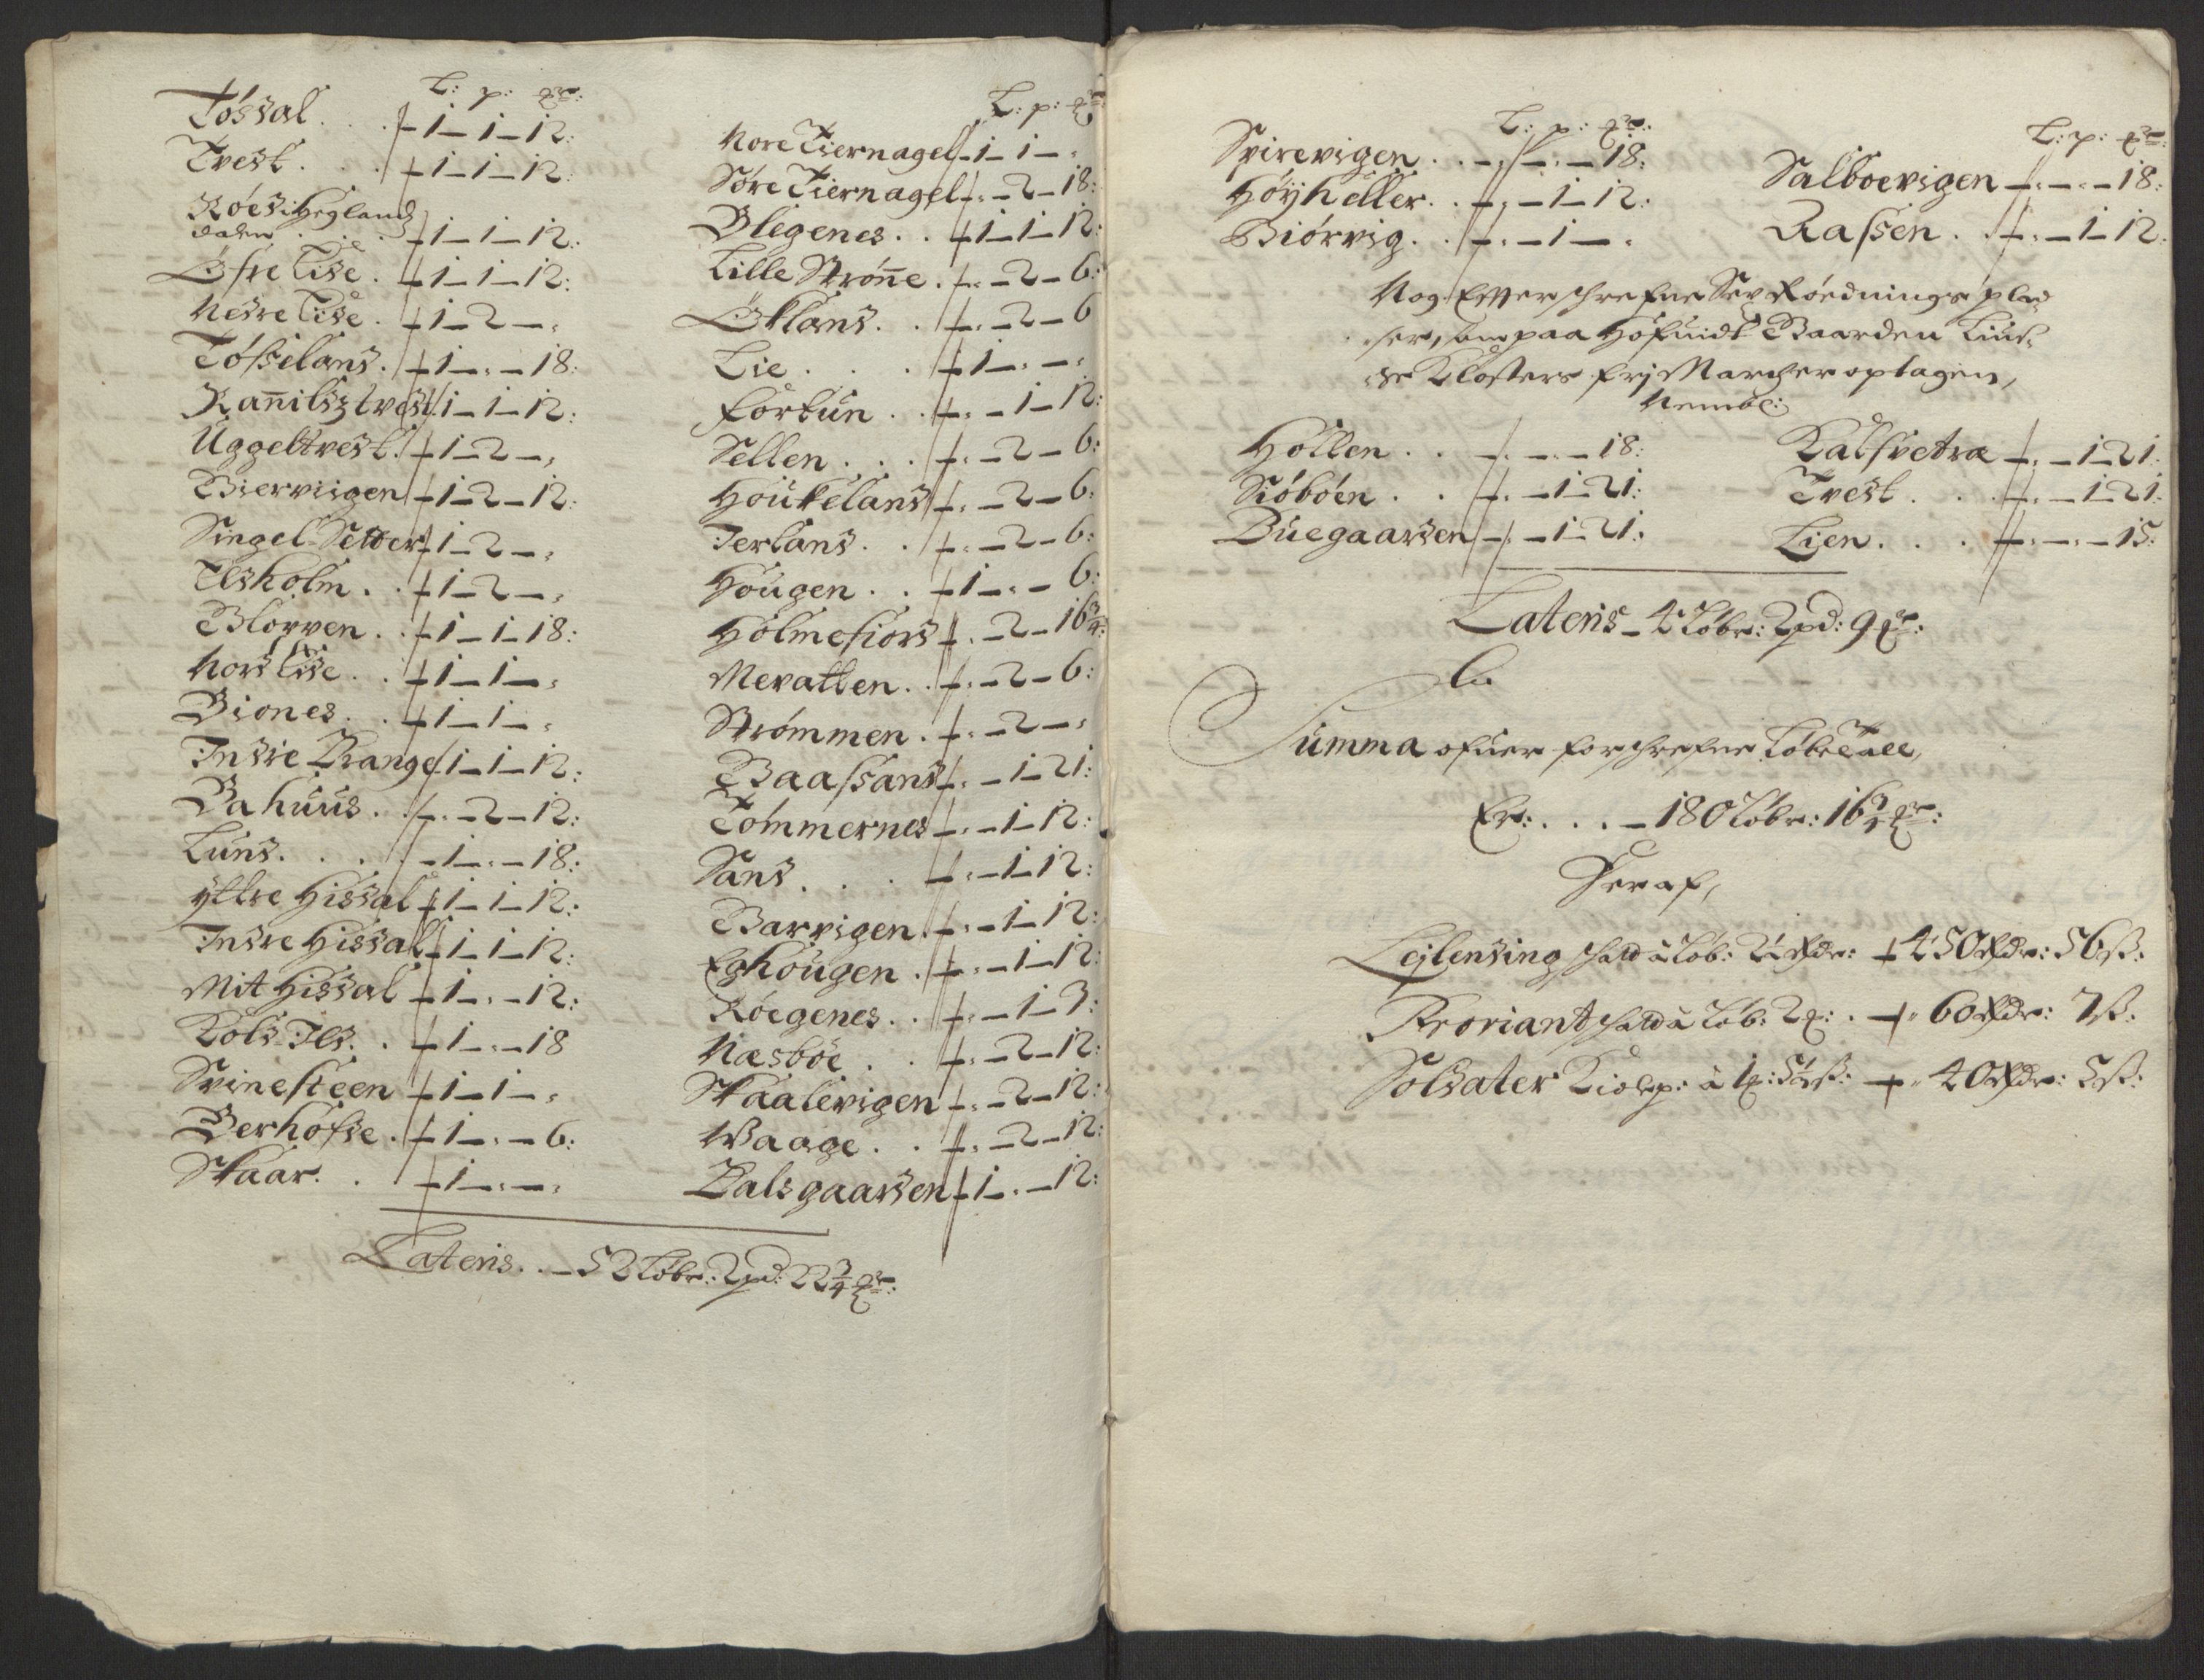 L: p: mr:
Tössal . . . 1 – 1 – 12:
Tvest . . . 1 – 1 – 12:
Röes i Hegland
dalen . . . 1 – 1 – 12:
Øfre Tise . 1 – 1 – 12:
Nedre Tise . 1 – 2 – :
Töfseland . 1 – : – 18:
Kannilsztvest 1 – 1 – 12:
Uggeltvest . 1 – 2 – :
Bierviigen 1 – 2 – 12:
Singel Setter 1 – 2 – :
Elsholm . . 1 – 2 – :
Blorven . . 1 – 1 – 18:
Nord Tise . . 1 – 1 – :
Biones . . 1 – 1 – :
Indre Drange 1 – 1 – 12:
Bahuus . . : – 2 – 12:
Lund . . . . 1 – : – 18:
Ÿttre Hissal 1 – 1 – 12:
Indre Hissal 1 – 1 – 12:
Mit Hissal 1 – : – 12:
Kolds Ild . . 1 – : – 18
Svinesteen 1 – 1 – :
Berhofde . 1 – : – 6:
Skaar . . 1 – : – :
L: p: mr
Nore Tiernagel 1 – 1 – :
Søre Tiernagel : – 2 – 18:
Blegenes . . 1 – 1 – 12:
Lille Strønne . : – 2 – 6:
Økland . . : – 2 – 6
Lie . . . 1 – : – :
Fortun . . : – 1 – 12:
Sellen . . . : – 2 – 6:
Houkeland : – 2 – 6:
Jerland . . : – 2 – 6:
Hougen . . 1 – : – 6:
Holmefiord : – 2 – 16 3/4:
Mevatten . . : – 2 – 6:
Strømmen . : – 2 – :
Baassand : – 1 – 21:
Tømmernes : – 1 – 12:
Sand . . . : – 1 – 12:
Barvigen . : – 1 – 12:
Eghougen . : – 1 – 12:
Röegenes . . : – 1 – 3:
Næsböe . . : – 2 – 12:
Skaalevigen : – 2 – 12:
Waage . . : – 2 – 12:
Dalsgaarden 1 – : – 12:
Lateris . . – 52 Løber: 2 pd: 22 3/4 mr:
L: p: mr:
Spirevigen . . : – : – 18:
Høÿheller . . : – 1 – 12:
Biørvig . . : – 1 – :
L: p: mr
Salboevigen : – : – 18:
Rassen . . : – 1 – 12:
Nog Effterschrefne Sex Röednings plad
ser, som paa Hofuidt Gaarden Lius,
de Closters frj Marcher optagen,
Nemblig:
Hollen . . : – : – 18:
Siöböen . . : – 1 – 21:
Buegaarden : – 1 – 21:
Kalfvetræ : – 1 – 21:
Tvest . . . : – 1 – 21:
Lien . . . : – : – 15:
Lateris – 4 Løber: 2 pd: 9 mr:
Summa ofuer forschrefne Løbe Tall,
Er: . . . – 180 Løber: 16 3/4 mr:
Heraf,
Leilending schatt à Løb: 2 1/2 Rdr: – 450 Rdr: 56 ß:
Proviant schatt à Løb: 2 : . – 60 Rdr: 7 ß:
Soldater à 1 – 40 Rdr: 5 ß: